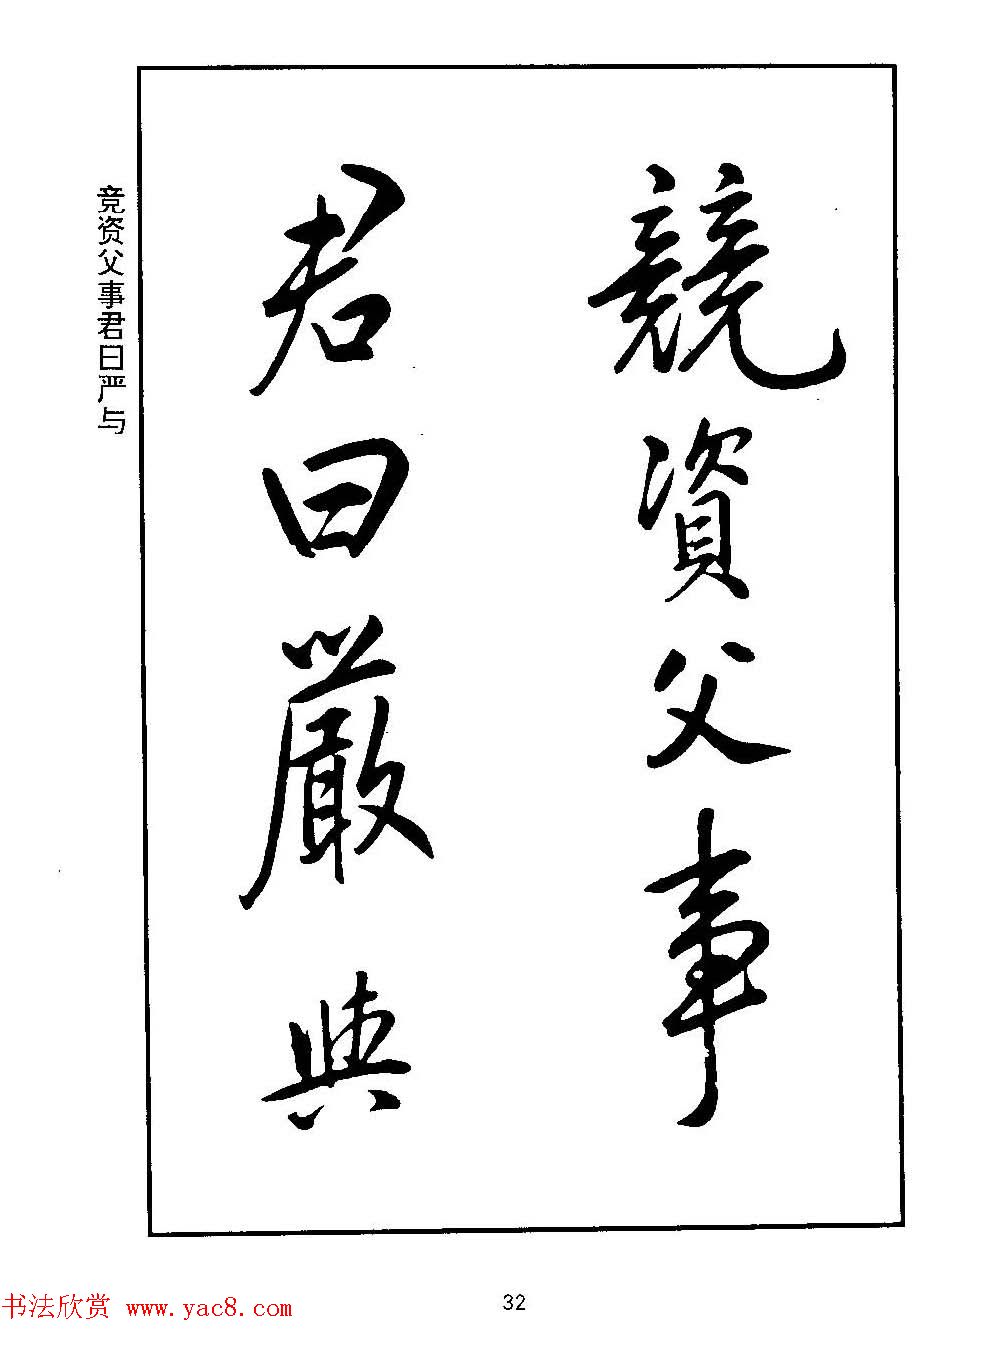 競資父事
君曰嚴與
竞资父事君曰严与
书法欣赏 www.yac8.com
32